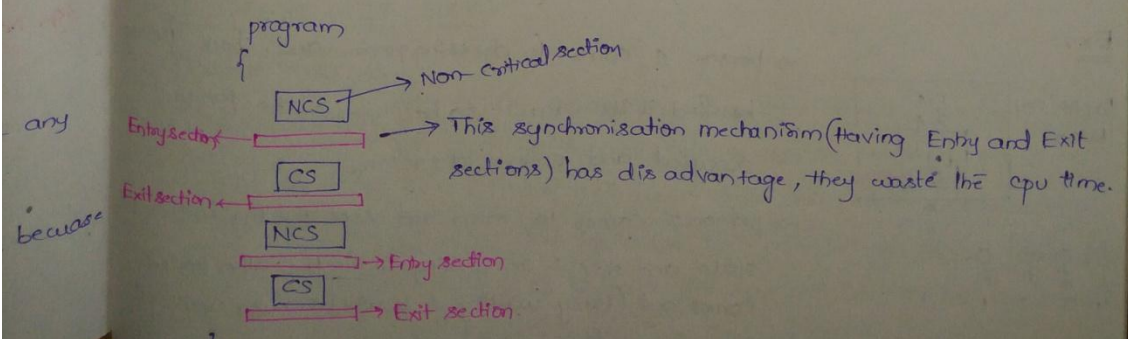 program
{
NCS → Non-Critical section
any
Entry section
→ This synchronisation mechanism (Having Entry and Exit
sections) has disadvantage, they waste the cpu time.
CS
Exit section
becuase
NCS
→ Entry section
CS
→ Exit section